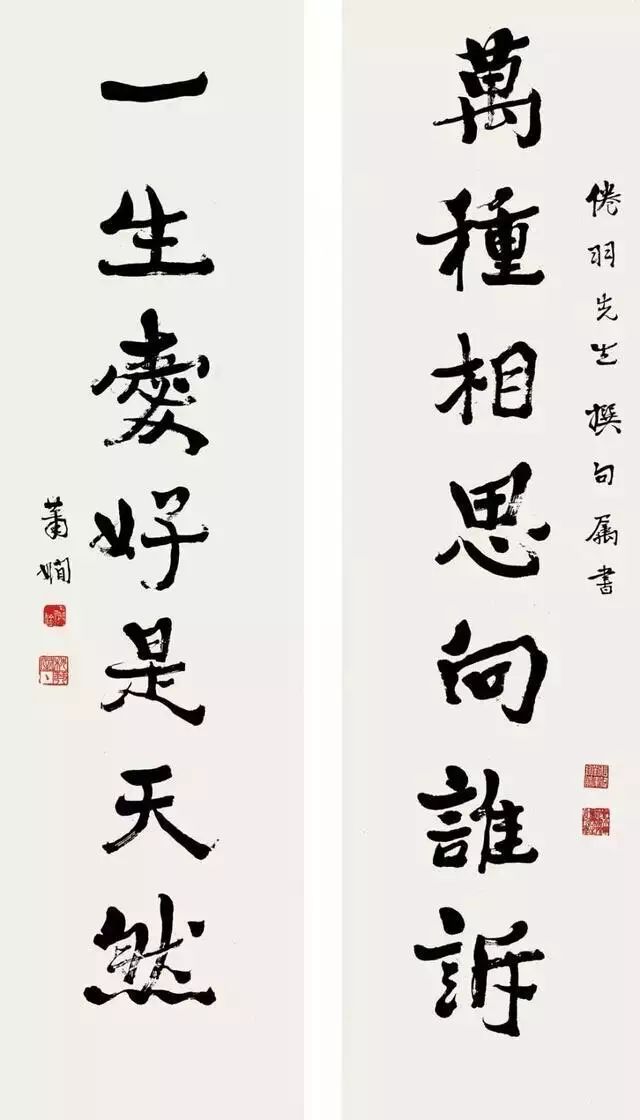 倦羽先生 撰句属書
萬種相思向誰訴
一生愛好是天然
蕭嫻